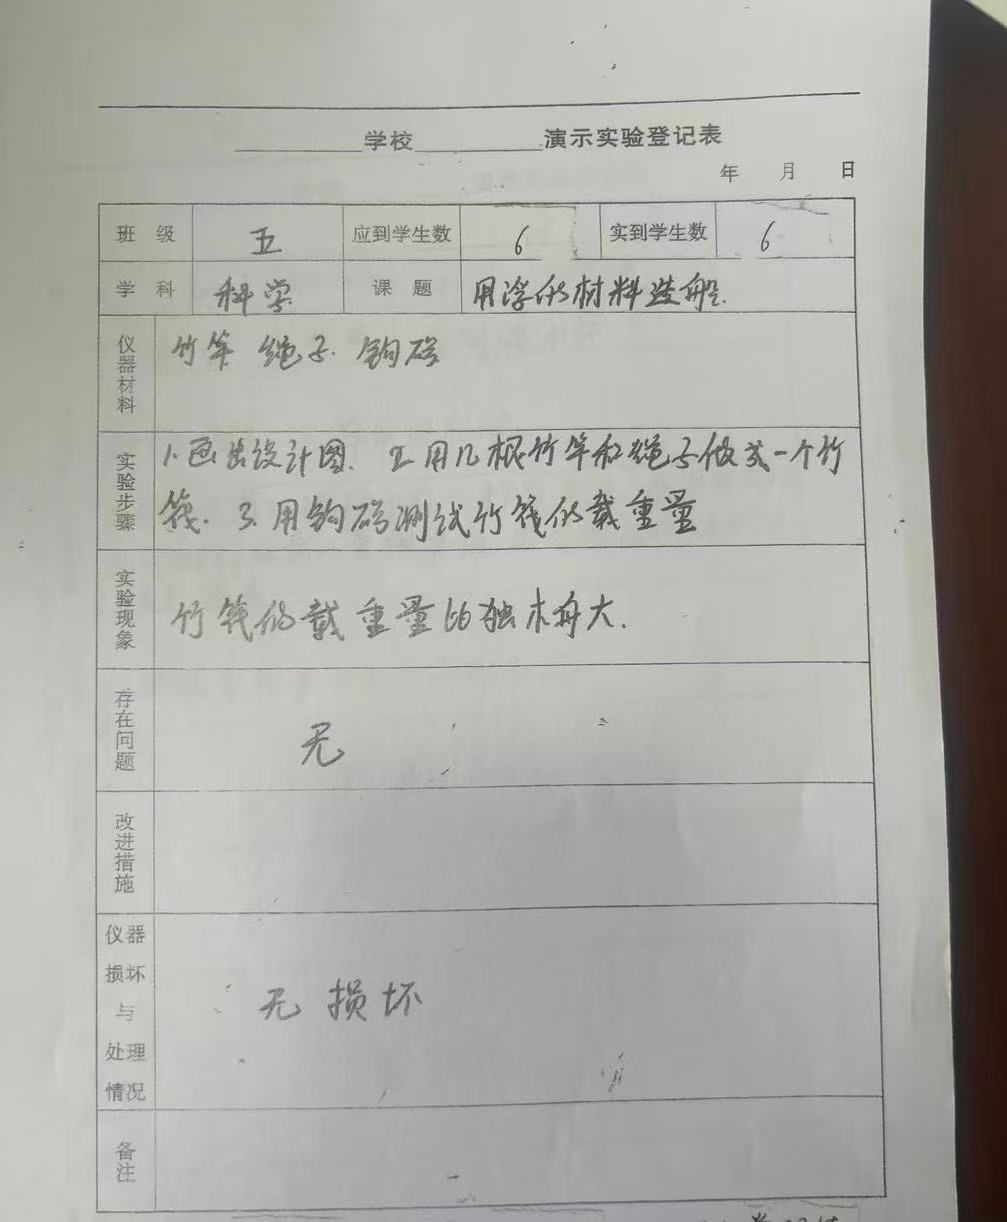 学校 演示实验登记表
年 月 日
班 级 五 应到学生数 6 实到学生数 6
学 科 科学 课 题 用浮的材料造船.
仪器材料 竹竿 绳子 钩码
实验步骤 1.画出设计图. 2.用几根竹竿和绳子做成一个竹
筏. 3.用钩码测试竹筏的载重量
实验现象 竹筏的载重量比独木舟大.
存在问题 无
改进措施
仪器
损坏
与
处理
情况
无损坏
备注